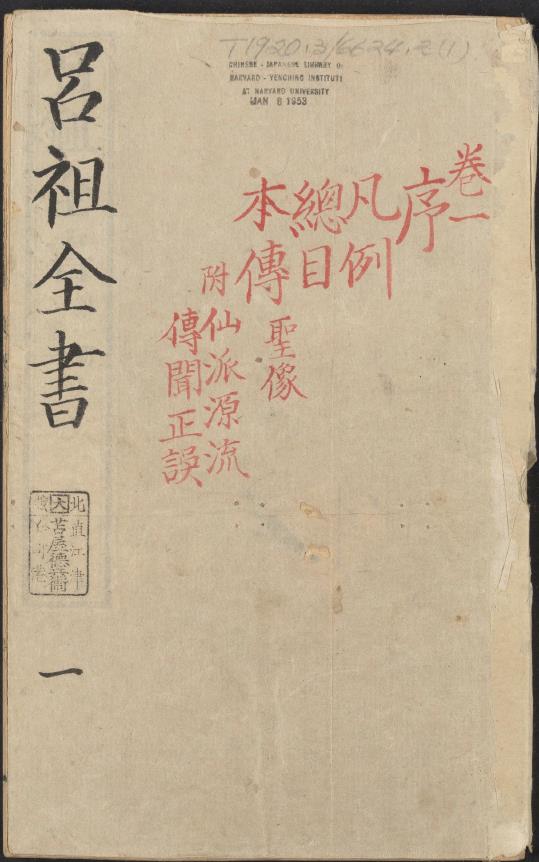 T1920.3/6624.2(1)
CHINESE - JAPANESE LIBRARY O
HARVARD - YENCHING INSTITUTE
AT HARVARD UNIVERSITY
JAN 8 1953
卷一
序
凡例
總目
本傳 聖像
附 仙派源流
傳聞正誤
呂祖全書
大
苫屋德兵衞
一